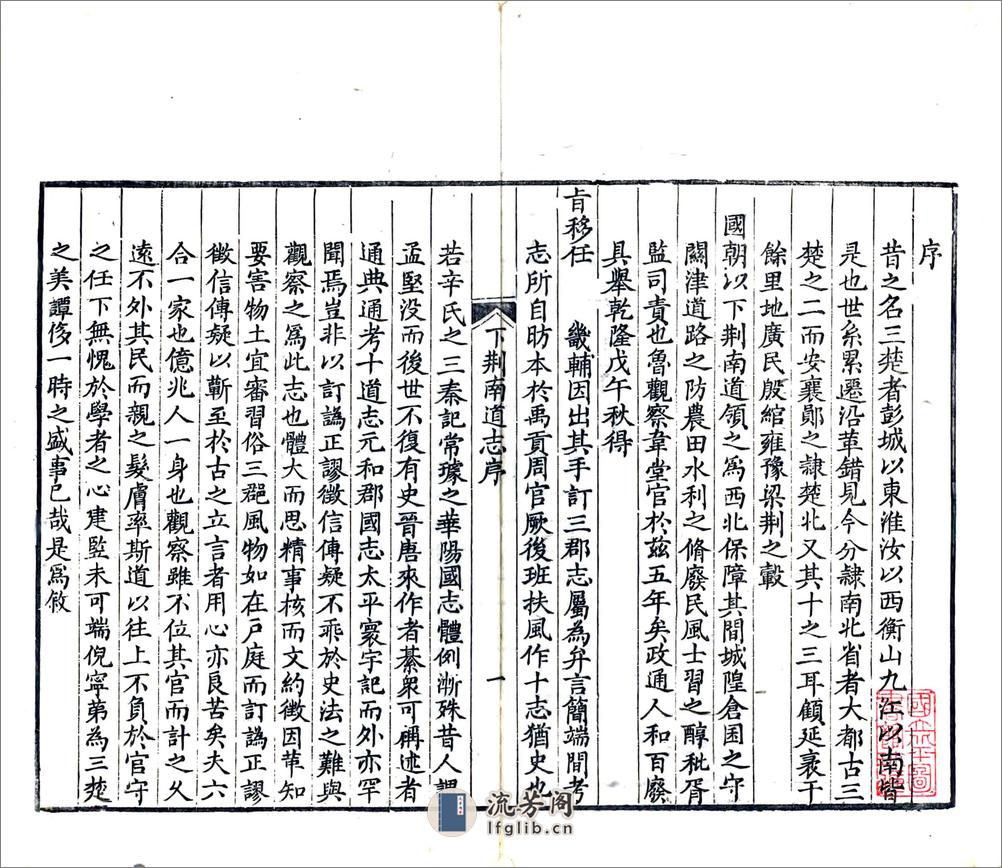 序
昔之名三楚者彭城以東淮汝以西衡山九江以南皆
是也世系累遷沿革錯見今分隷南北省者大都古三
楚之二而安襄鄖之隷楚北又其十之三耳顧延袤千
餘里地廣民殷綰雍豫梁荆之轂
國朝以下荆南道領之爲西北保障其間城隍倉囯之守
關津道路之防農田水利之脩廢民風士習之醇秕胥
監司責也魯觀察韋堂官於茲五年矣政通人和百廢
具舉乾隆戊午秋得
㫖移任 畿輔因出其手訂三郡志屬為弁言簡端間考
志所自昉本於禹貢周官厥後班扶風作十志猶史也
下荆南道志序 一
若辛氏之三秦記常璩之華陽國志體例漸殊昔人謂
孟堅没而後世不復有史晉唐來作者綦衆可稱述者
通典通考十道志元和郡國志太平寰宇記而外亦罕
聞焉豈非以訂譌正謬徵信傳疑不乖於史法之難與
觀察之爲此志也體大而思精事核而文約徵因革知
要害物土宜審習俗三郡風物如在戸庭而訂譌正謬
徵信傳疑以蘄至於古之立言者用心亦良苦矣夫六
合一家也億兆人一身也觀察雖不位其官而計之父
遠不外其民而親之髮膚率斯道以往上不負於官守
之任下無愧於學者之心建監未可端倪寧第為三楚
之美譚侈一時之盛事已哉是爲敘
流芳阁
lfglib.cn